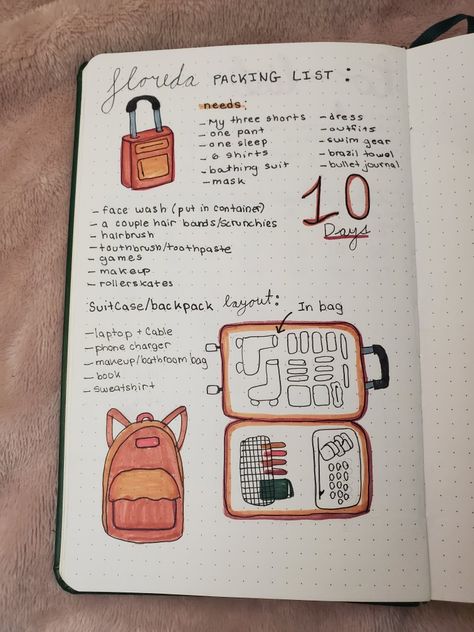 floreda PACKING LIST :
needs:
- My three shorts
- one pant
- one sleep
- 6 shirts
- bathing suit
- mask
- dress
- outfits
- swim gear
- brazil towel
- bullet journal
10
Days
- face wash (put in container)
- a couple hair bands/scrunchies
- hairbrush
- touthbrush/toothpaste
- games
- makeup
- rollerskates
Suitcase/backpack layout:
In bag
- laptop + cable
- phone charger
- makeup/bathroom bag
- book
- sweatshirt